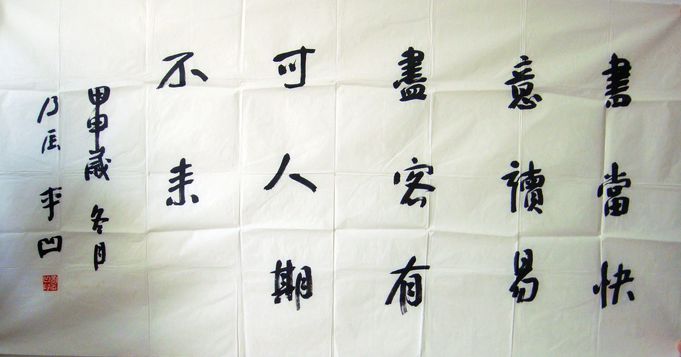 書當快
意讀易
盡客有
可人期
不来
甲申歲冬月
平凹